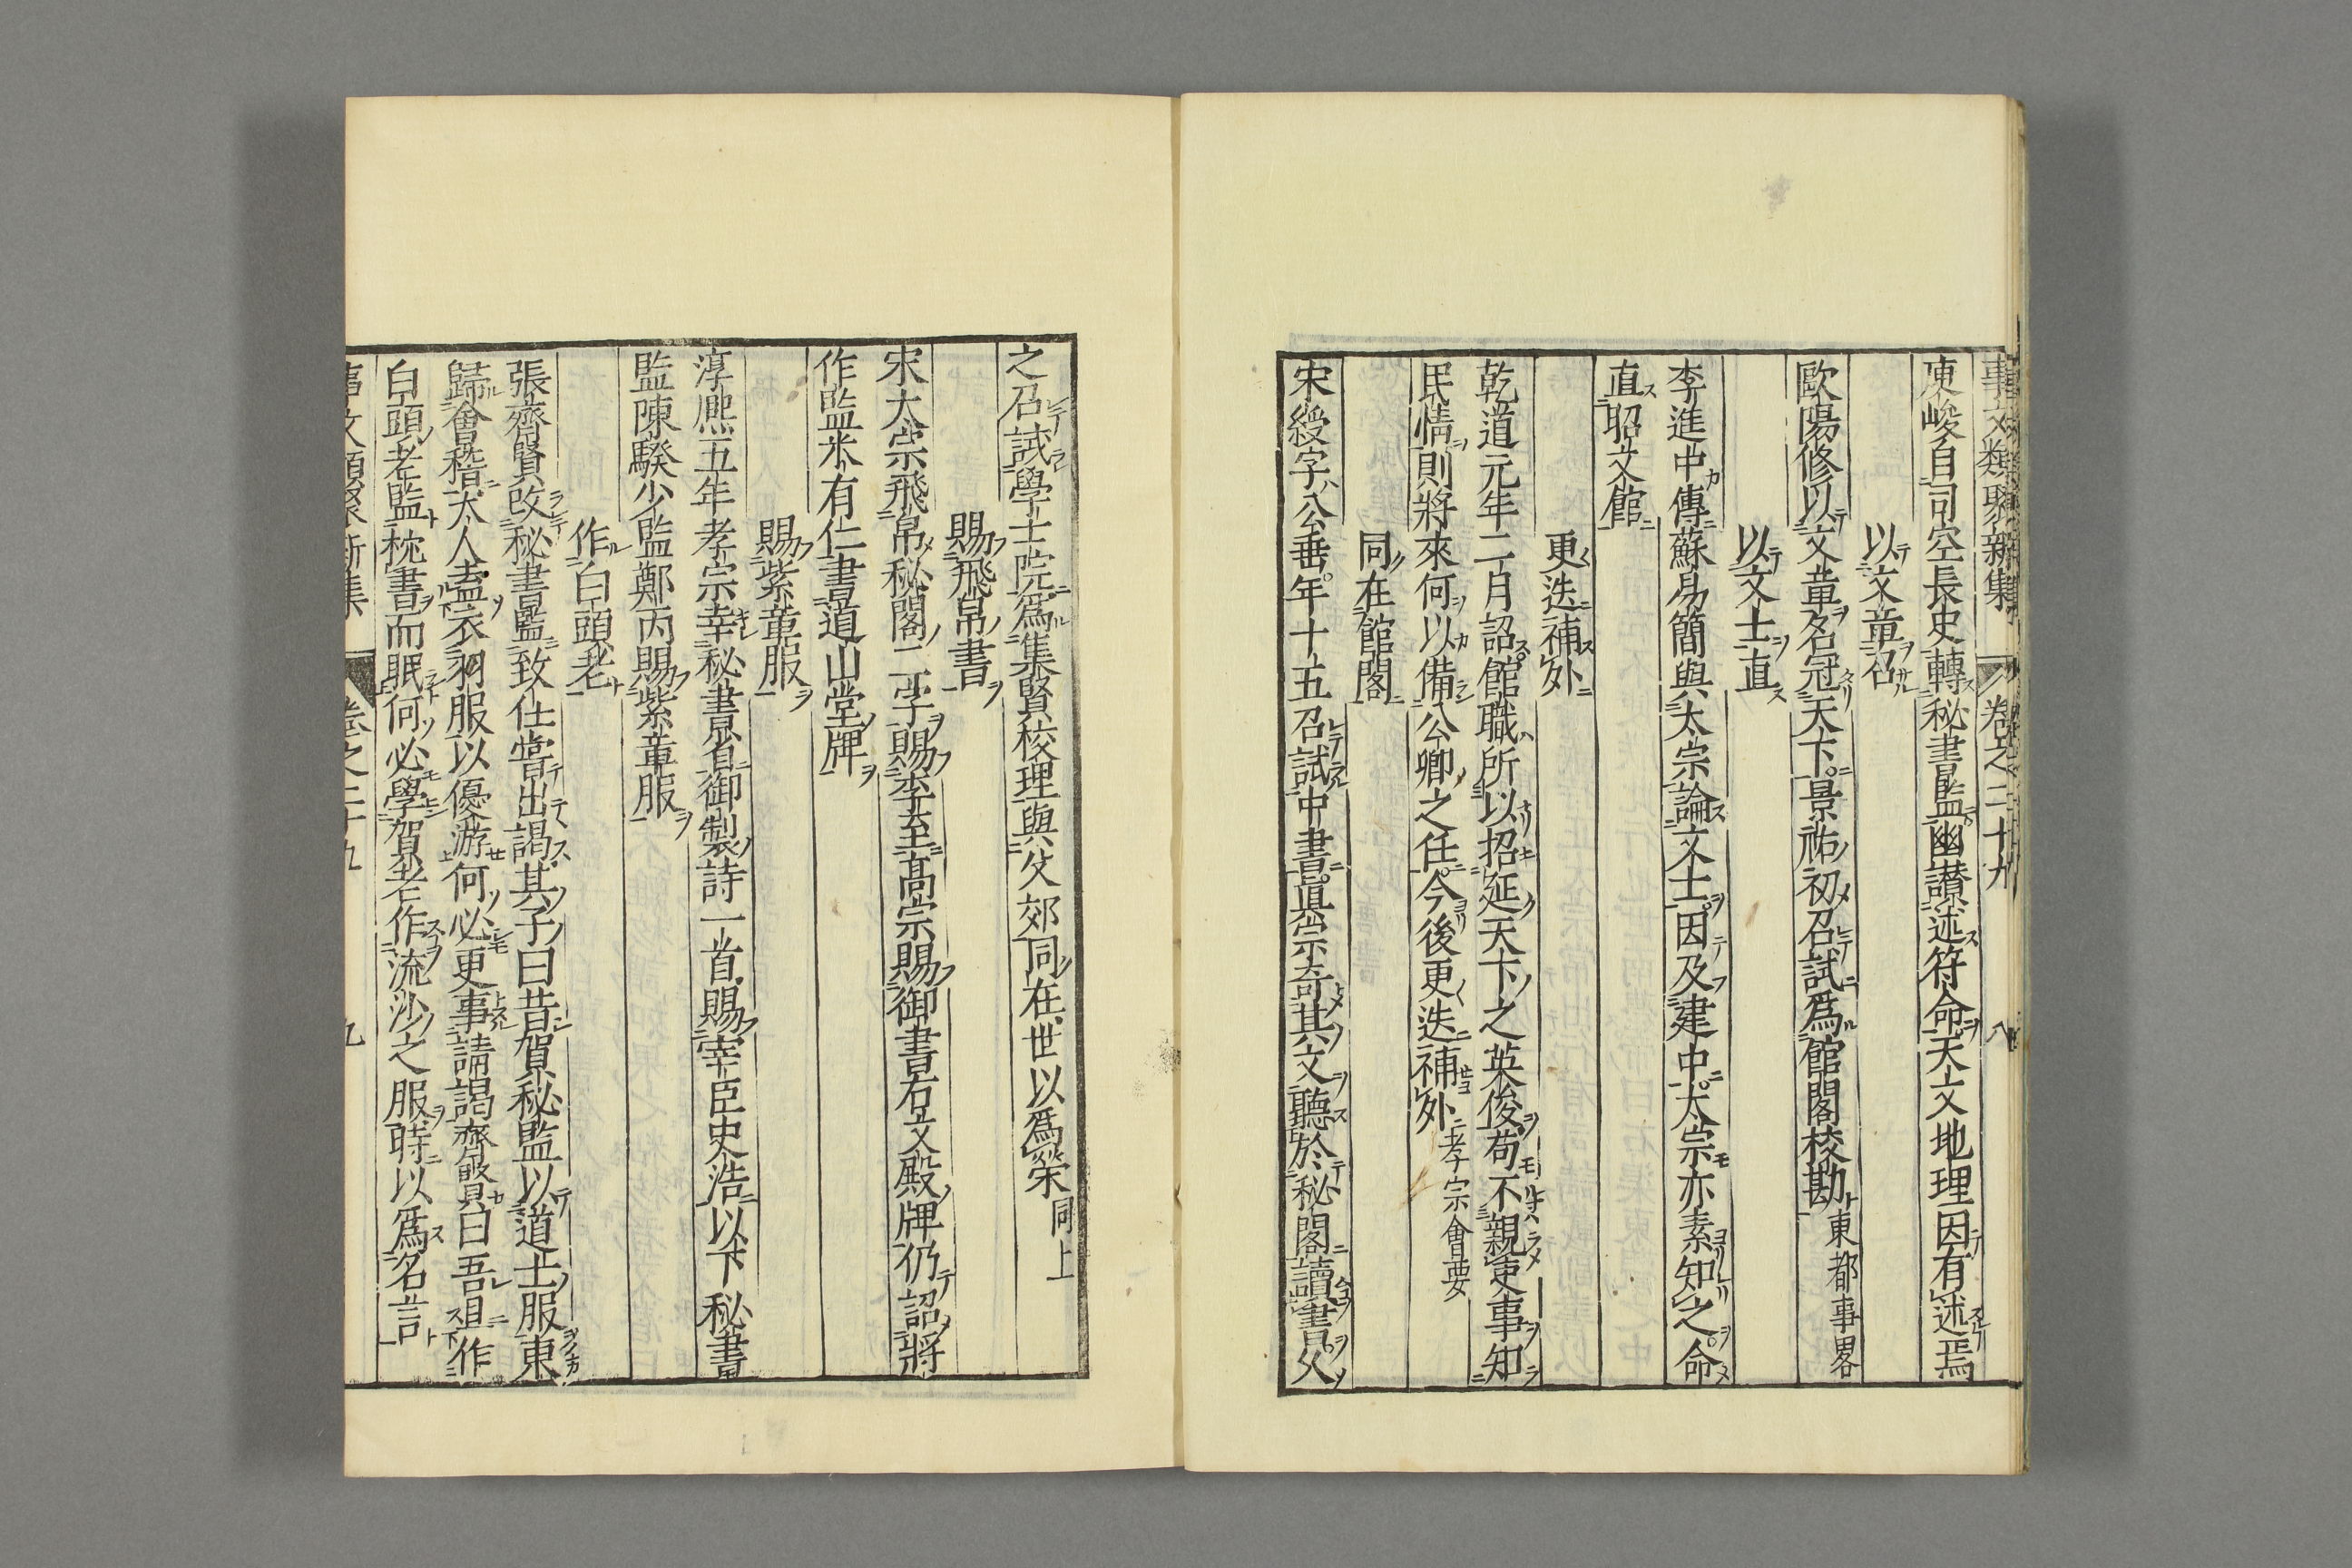 事文類聚新集 卷之二十九 八
陳峻自司空長史轉秘書監幽讃述符命天文地理因有述焉
以文章召
歐陽修以文章名冠天下景祐初召試爲館閣校勘東都事畧
以文士直
李進中傳蘇易簡與太宗論文士因及建中太宗亦素知之命
直昭文館
更迭補外
乾道元年二月詔館職所以招延天下之英俊苟不親吏事知
民情則將來何以備公卿之任今後更迭補外孝宗會要
同在館閣
宋綬字公垂年十五召試中書眞宗奇其文聽於秘閣讀書久
之召試學士院爲集賢校理與父郊同在世以爲榮同上
賜飛帛書
宋太宗飛帛秘閣二字賜李至髙宗賜御書右文殿牌仍詔將
作監米有仁書道山堂牌
賜紫章服
淳熈五年孝宗幸秘書省御製詩一首賜宰臣史浩以下秘書
監陳騤少監鄭丙賜紫章服
作白頭老
張齊賢攺秘書監致仕嘗出謁其子曰昔賀秘監以道士服東
歸會稽太人盍衣羽服以優游何必更事請謁齊賢曰吾俎作
白頭老監枕書而眠何必學賀老作流沙之服時以爲名言
事文類聚新集 卷之二十九 九